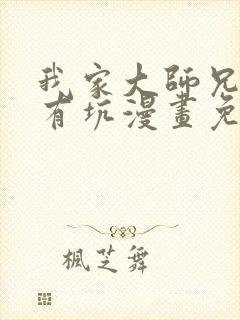 我家大師兄
有坑漫畫免
楓芝舞